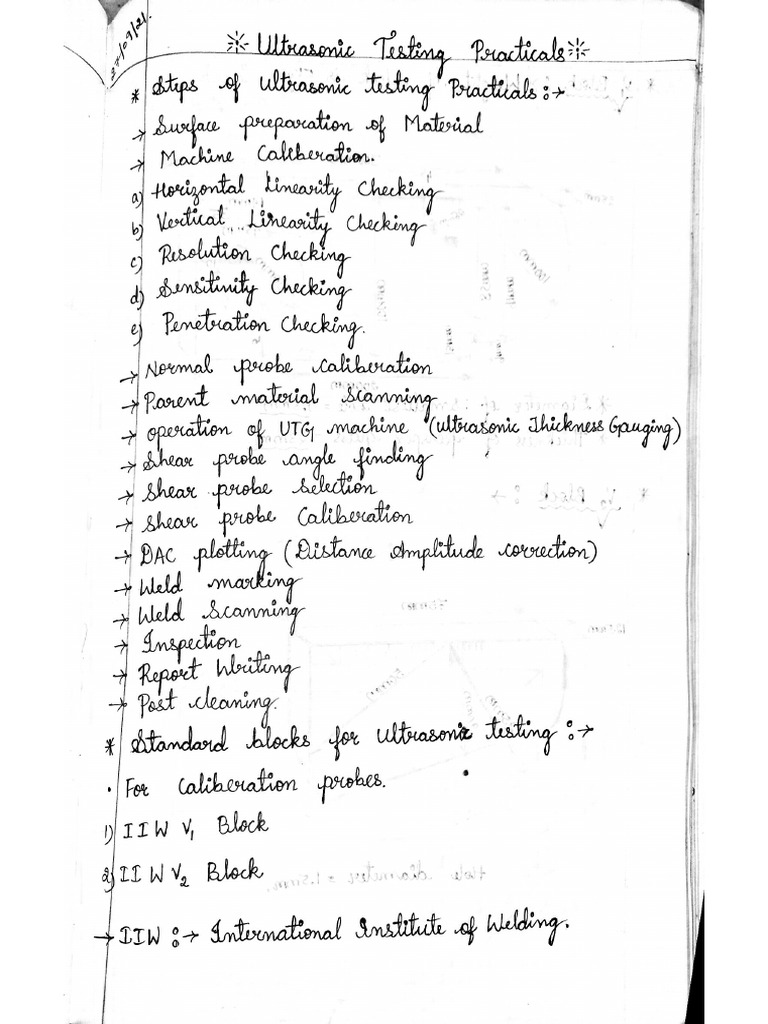 27/09/21.
* Ultrasonic Testing Practicals *
* Steps of Ultrasonic testing Practicals :→
→ Surface preparation of Material
→ Machine Caliberation.
a) Horizontal Linearity Checking
b) Vertical Linearity Checking
c) Resolution Checking
d) Sensitivity Checking
e) Penetration Checking.
→ Normal probe caliberation
→ Parent material scanning
→ operation of UTG machine (Ultrasonic Thickness Gauging)
→ Shear probe angle finding
→ Shear probe Selection
→ Shear probe Caliberation
→ DAC plotting (Distance Amplitude correction)
→ Weld marking
→ Weld Scanning
→ Inspection
→ Report Writing
→ Post cleaning.
* Standard blocks for Ultrasonic testing :→
• For Caliberation probes.
1) IIW V1 Block
2) IIW V2 Block
→ IIW :→ International Institute of Welding.